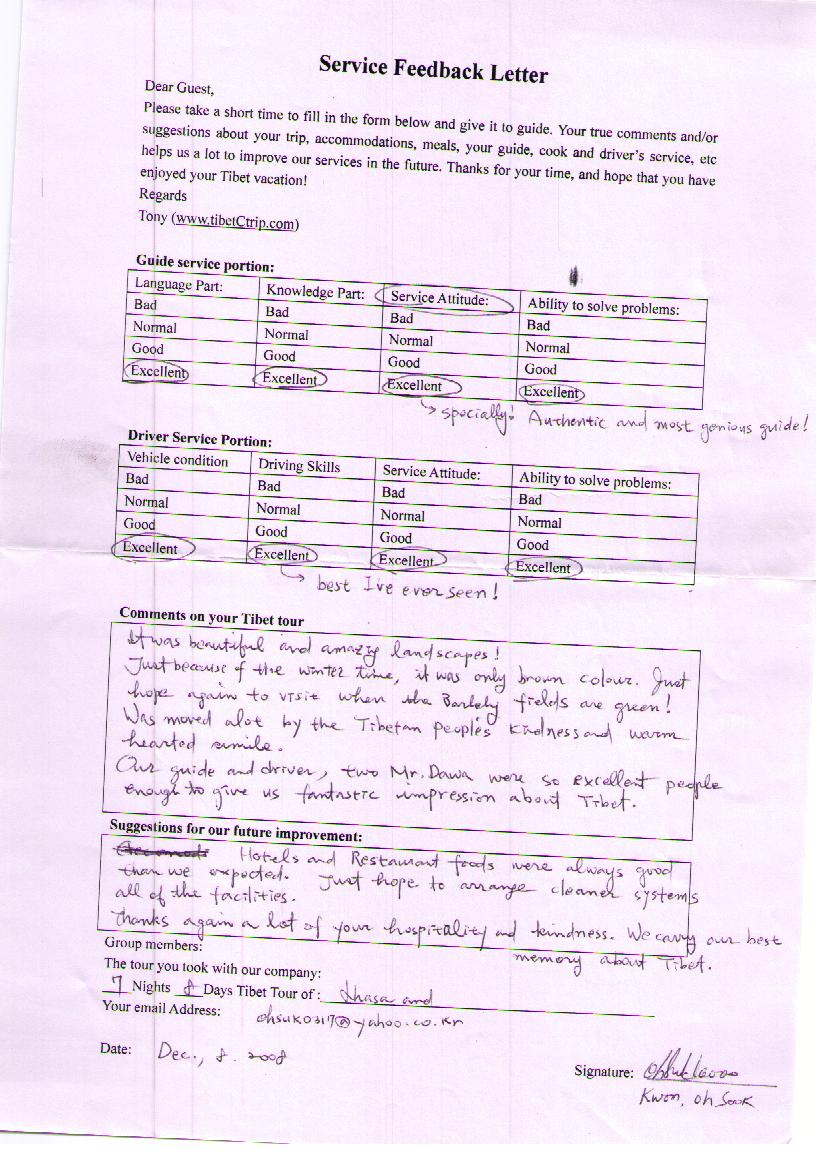 Service Feedback Letter
Dear Guest,
Please take a short time to fill in the form below and give it to guide. Your true comments and/or
suggestions about your trip, accommodations, meals, your guide, cook and driver's service, etc
helps us a lot to improve our services in the future. Thanks for your time, and hope that you have
enjoyed your Tibet vacation!
Regards
Tony (www.tibetCtrip.com)
Guide service portion:
Language Part: Knowledge Part: Service Attitude: Ability to solve problems:
Bad Bad Bad Bad
Normal Normal Normal Normal
Good Good Good Good
Excellent Excellent Excellent Excellent
specially! Authentic and most genious guide!
Driver Service Portion:
Vehicle condition Driving Skills Service Attitude: Ability to solve problems:
Bad Bad Bad Bad
Normal Normal Normal Normal
Good Good Good Good
Excellent Excellent Excellent Excellent
best I've ever seen!
Comments on your Tibet tour
It was beautiful and amazig landscapes!
Just because of the winter time, it was only brown colour. Just
hope again to visit when the Barlely fields are green!
Was moved alot by the Tibetan people's kindness and warm
hearted smile.
Our guide and driver, two Mr. Dawa were so excellent people
enough to give us fantastic impression about Tibet.
Suggestions for our future improvement:
Hotels and Restaurant foods were always good
than we expected. Just hope to arrange cleaner systems
all of the facilities.
Thanks again a lot of your hospitality and kindness. We carry our best
memory about Tibet.
Group members:
The tour you took with our company:
7 Nights 8 Days Tibet Tour of: Lhasa and
Your email Address: ohsuk0317@yahoo.co.kr
Date: Dec., 8. 2008
Signature:
Kwon, oh Sook